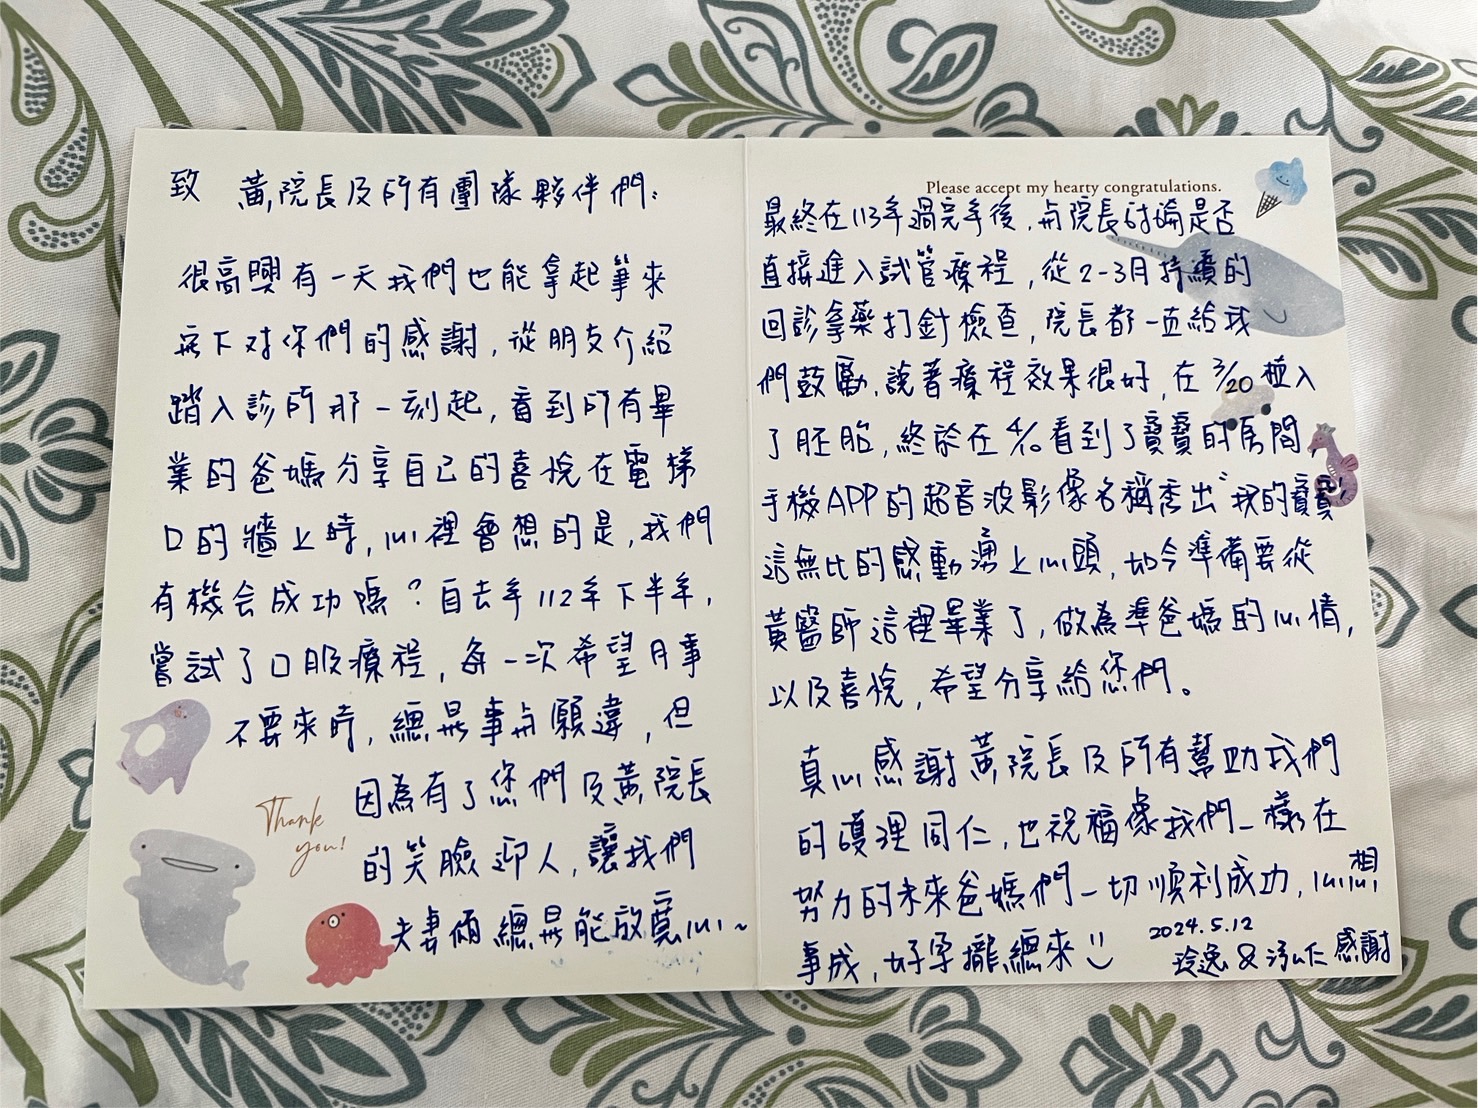 致 黃院長及所有團隊夥伴們：
很高興有一天我們也能拿起筆來
寫下对你們的感謝，從朋友介紹
踏入診所那一刻起，看到所有畢
業的爸媽分享自己的喜悅在電梯
口的牆上時，心裡會想的是，我們
有機会成功嗎？自去年112年下半年，
嘗試了口服療程，每一次希望月事
不要來時，總是事与願違，但
因為有了您們及黃院長
的笑臉迎人，讓我們
夫妻倆總是能放寬心~
Thank
you!
Please accept my hearty congratulations.
最終在113年過完年後，与院長討論是否
直接進入試管療程，從2-3月持續的
回診拿藥打針檢查，院長都一直給我
們鼓勵，說著療程效果很好，在3/20植入
了胚胎，終於在4/10看到了寶寶的房間。
手機APP的超音波影像名稱秀出"我的寶寶"
這無比的感動湧上心頭，如今準備要從
黃醫師這裡畢業了，做為準爸媽的心情，
以及喜悅，希望分享給您們。
真心感謝黃院長及所有幫助我們
的護理同仁，也祝福像我們一樣在
努力的未來爸媽們一切順利成功，心想
事成，好孕攏總來
2024.5.12
玲逸 & 仁 感謝